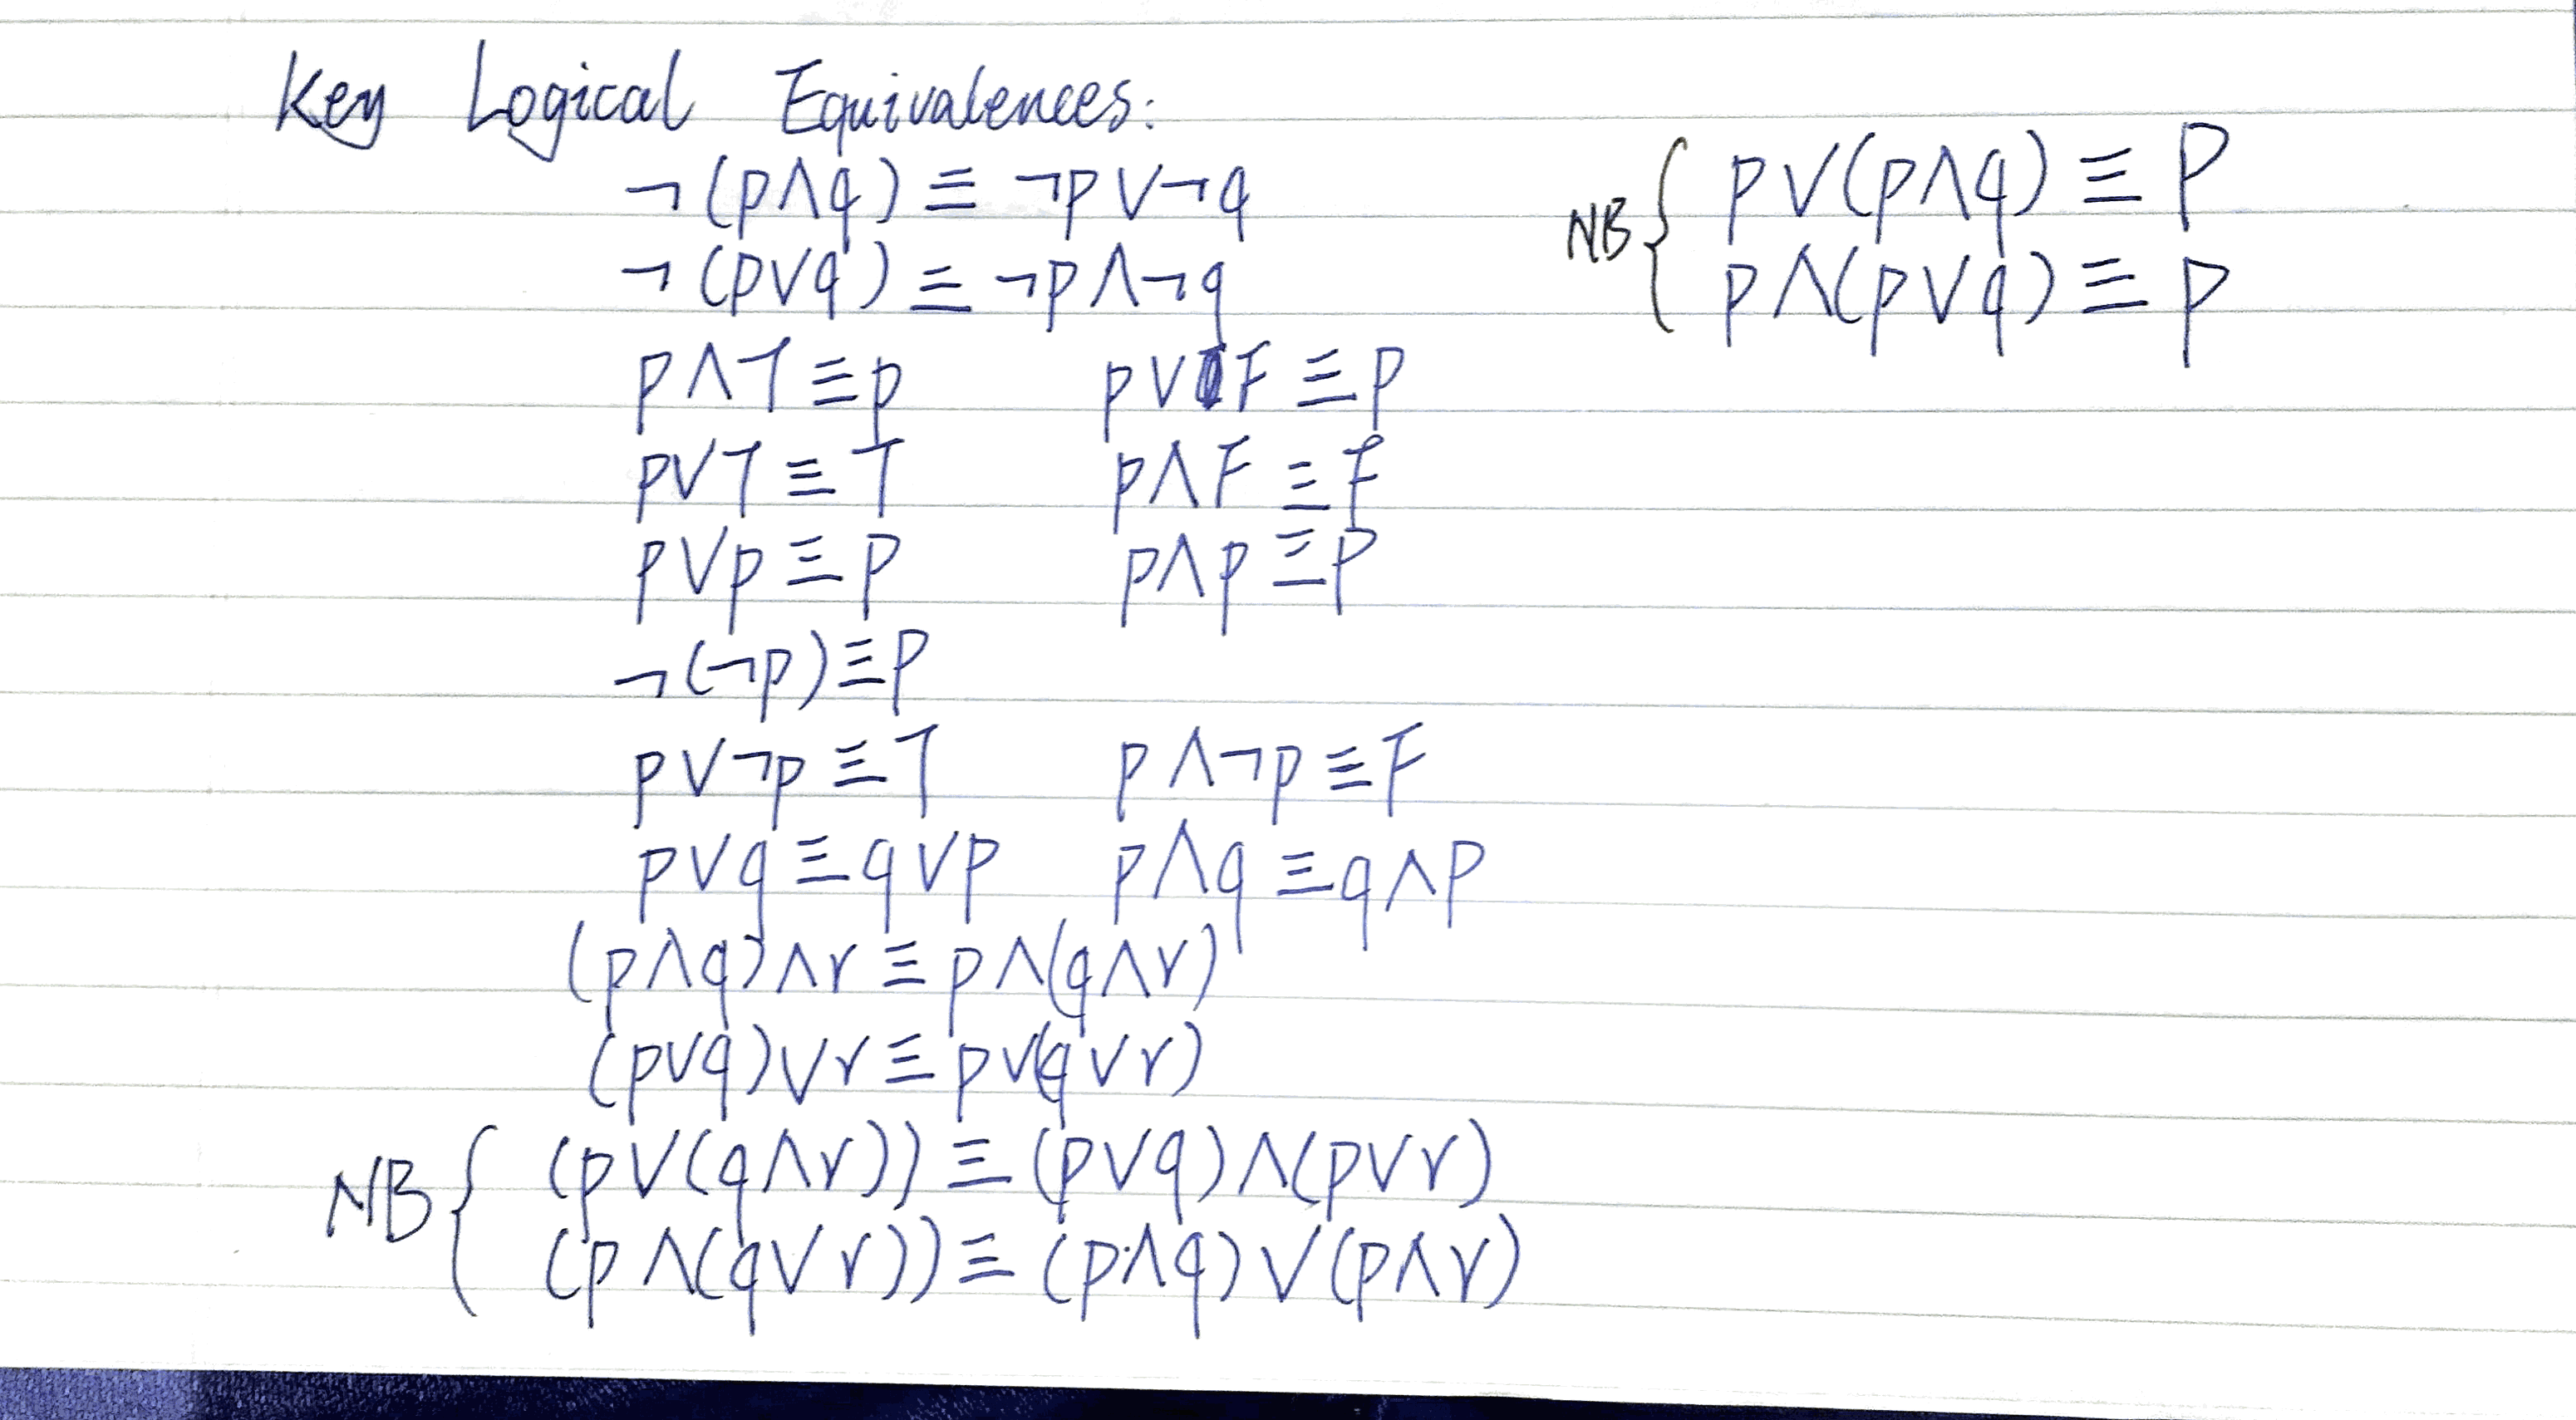 Key Logical Equivalences:
¬(p∧q) ≡ ¬p∨¬q
¬(p∨q) ≡ ¬p∧¬q
p∧T ≡ p p∨F ≡ p
p∨T ≡ T p∧F ≡ F
p∨p ≡ p p∧p ≡ p
¬(¬p) ≡ p
p∨¬p ≡ T p∧¬p ≡ F
p∨q ≡ q∨p p∧q ≡ q∧p
(p∧q)∧r ≡ p∧(q∧r)
(p∨q)∨r ≡ p∨(q∨r)
NB { (p∨(q∧r)) ≡ (p∨q)∧(p∨r)
(p∧(q∨r)) ≡ (p∧q)∨(p∧r)
NB { p∨(p∧q) ≡ p
p∧(p∨q) ≡ p